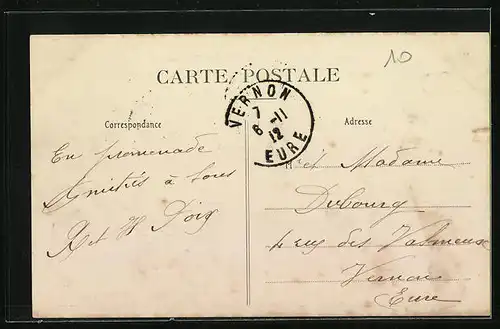 10
CARTE POSTALE
VERNON
7
6-11
12
EURE
Correspondance
Adresse
En promenade
Amitiés à tous
R et H
M et Madame
Dubourg
4 rue des
Vernon
Eure